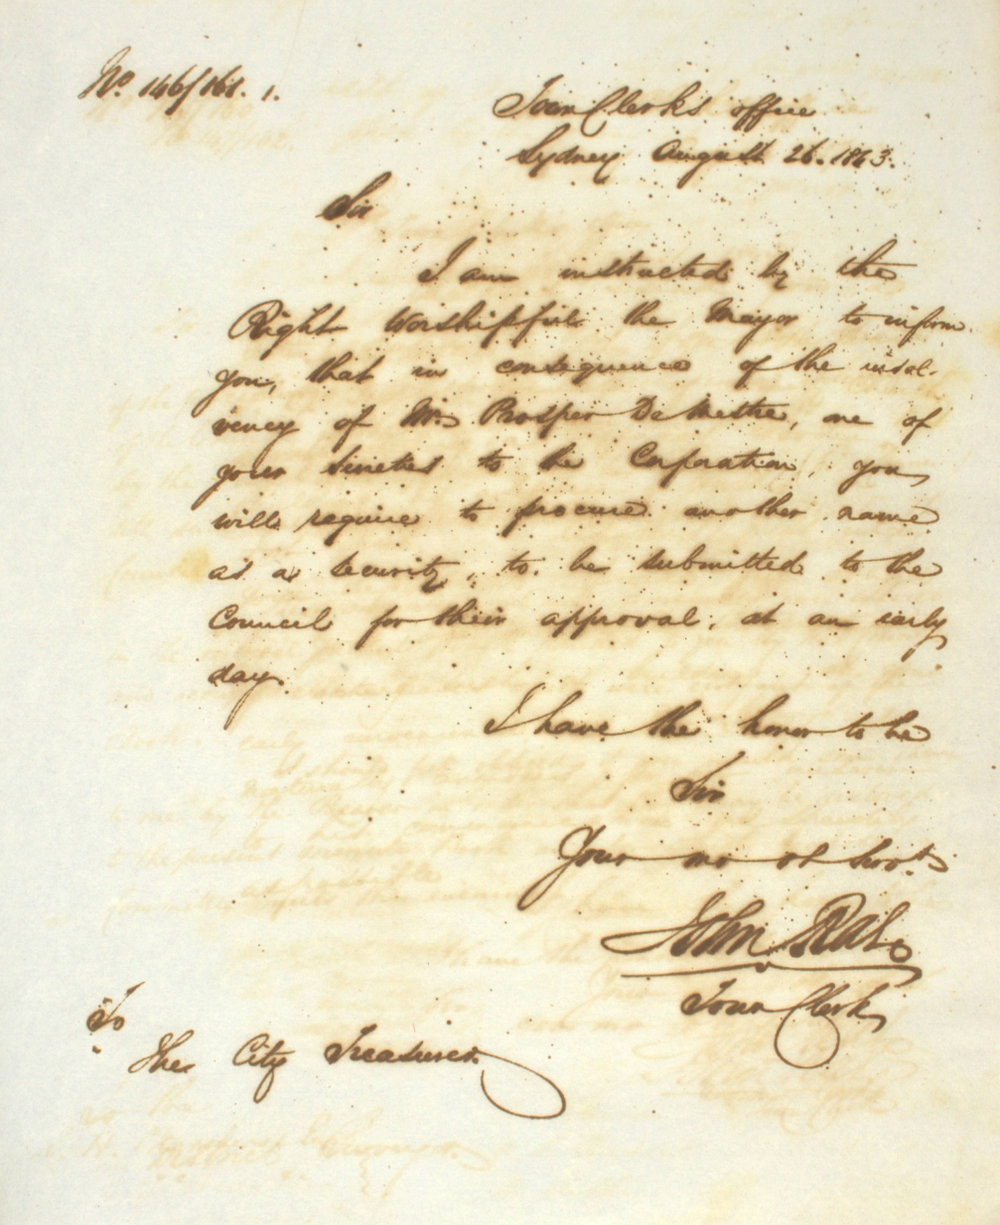 No. 146/161. 1.
Town Clerk's office
Sydney August 26. 1843.
Sir
I am instructed by the
Right Worshipful the Mayor to inform
you, that in consequence of the insol-
vency of Mr. Prosper De Mestre, one of
your sureties to the Corporation, you
will require to procure another name
as a security, to be submitted to the
Council for their approval, at an early
day.
I have the honor to be
Sir
Your mo ob Servt.
John Rae
Town Clerk
To
The City Treasurer.